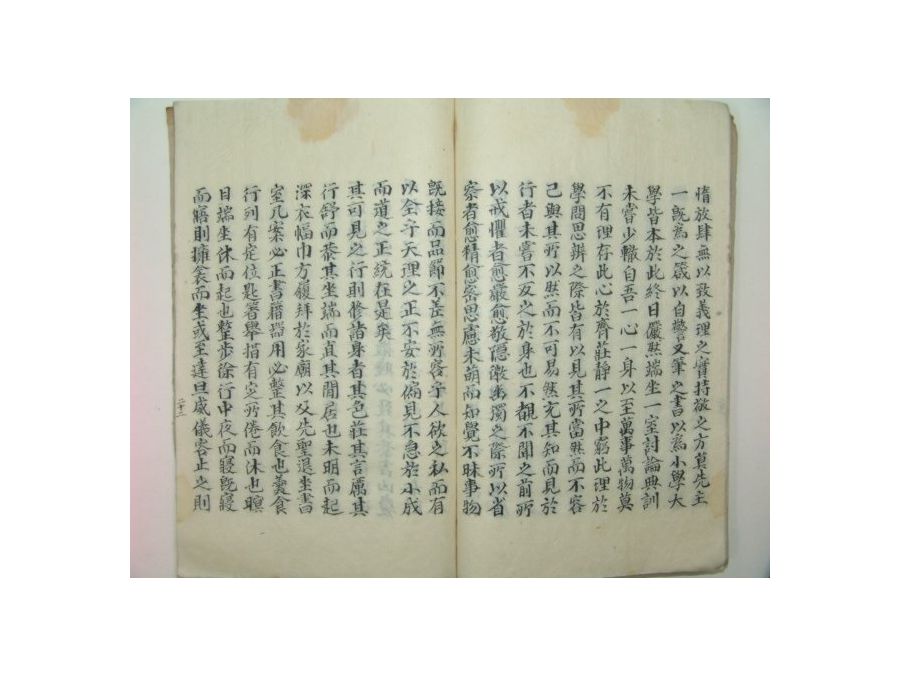 惰放肆無以致義理之實持敬之方莫先主
一旣爲之箴以自警又筆之書以爲小學大
學皆本於此終日儼然端坐一室討論典訓
未嘗少輟自吾一心一身以至萬事萬物莫
不有理存此心於齊莊靜一之中窮此理於
學問思辨之際皆有以見其所當然而不容
已與其所以然而不可易然充其知而見於
行者未嘗不反之於身也不覩不聞之前所
以戒懼者愈嚴愈敬隱微幽獨之際所以省
察者愈精愈密思慮未萌而知覺不昧事物
旣接而品節不差無所容乎人欲之私而有
以全乎天理之正不安於偏見不急於小成
而道之正統在是矣
其可見之行則修諸身者其色莊其言厲其
行舒而恭其坐端而直其閒居也未明而起
深衣幅巾方履拜於家廟以及先聖退坐書
室几案必正書籍器用必整其飮食也羹食
行列有定位匙箸擧措有定所倦而休也瞑
目端坐休而起也整步徐行中夜而寢旣寢
而寤則擁衾而坐或至達旦威儀容止之則
二十三